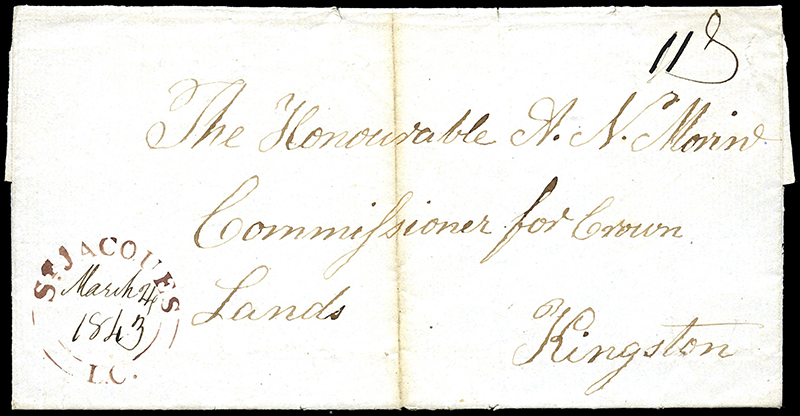 11
The Honourable A. N. Morin
Commissioner for Crown
Lands
Kingston
ST JACQUES
March 4
1843
L.C.